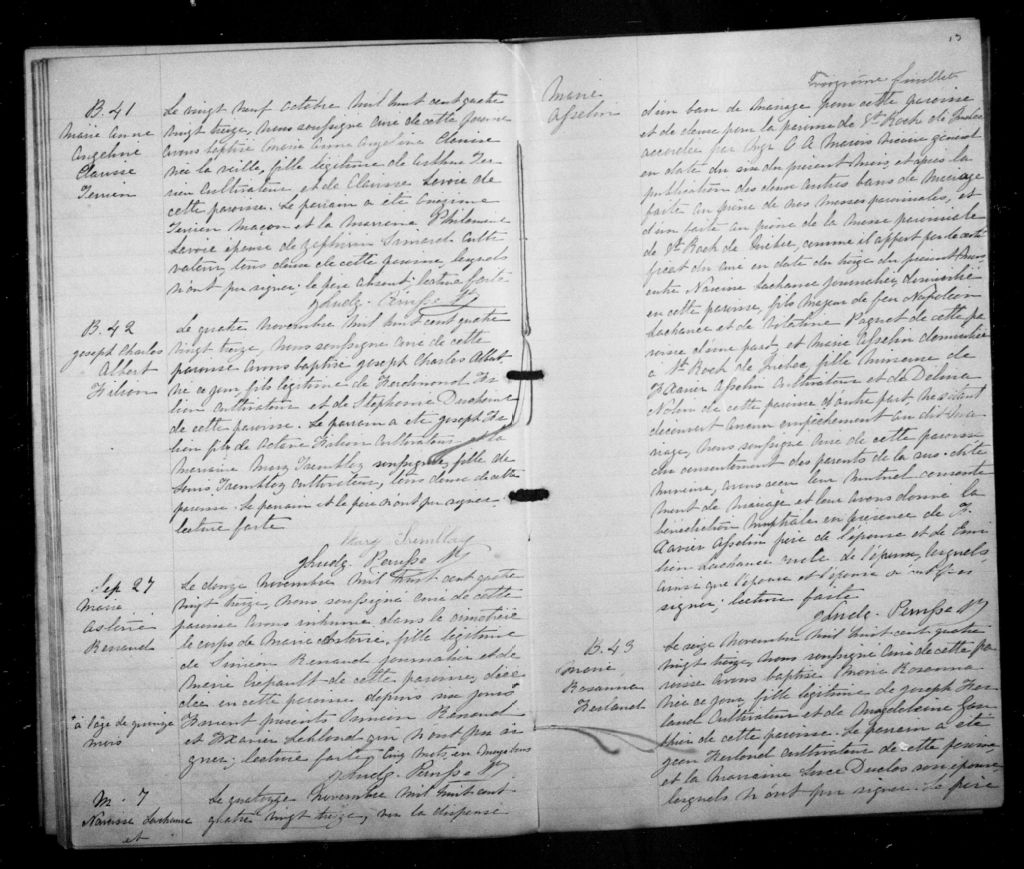 B. 41
Marie Anne
Angeline
Clarisse
Terrien
Le vingt neuf octobre mil huit cent quatre
vingt treize, nous soussigné curé de cette paroisse
avons baptisé Marie Anne Angelina Clarisse
née la veille, fille légitime de Ter-
rien cultivateur, et de Clarisse Lavoie de
cette paroisse. Le parrain a été Onezime
Terrien maçon et la marraine Philomene
Lavoie épouse de Zéphirin Simard culti-
vateur, tous deux de cette paroisse, lesquels
n'ont pu signer. le père absent; lecture faite
B. 42
Joseph Charles
Albert
Filion
Le quatre novembre mil huit cent quatre
vingt treize, nous soussigné curé de cette
paroisse avons baptisé Joseph Charles Albert
né ce jour, fils légitime de Ferdinand Fi-
lion cultivateur et de Stephanie
de cette paroisse. Le parrain a été Joseph Fi-
lion fils de Octave Filion cultivateur et la
marraine Mary Tremblay soussignée, fille de
Louis Tremblay cultivateur, tous deux de cette
paroisse. le parrain et le père n'ont pu signer.
lecture faite
Mary Tremblay
Sep 27
Marie
Renaud
Le douze novembre mil huit cent quatre
vingt treize, nous soussigné curé de cette
paroisse avons inhumé dans le cimetière
le corps de Marie fille légitime
de Simeon Renaud journalier et de
Marie de cette paroisse, décé-
dée en cette paroisse depuis six jours
à l'âge de quinze
mois
Furent presents Simeon Renaud
et Xavier Leblond qui n'ont pu si-
gner; lecture faite, Cinq mots en marge bons
M. 7
Narcisse Lachance
et
Le quatorze novembre mil huit cent
quatre vingt treize, vu la dispense
13
Troisième feuillet
Marie
Asselin
d'un ban de mariage pour cette paroisse
et de deux pour la paroisse de St. Roch de Québec
accordée par Mgr C A Marois vicaire général
en date du six du présent mois, et après la
publication des deux autres bans de mariage
faite au prône de nos messes paroissiales, et
d'un faite au prône de la messe paroissiale
de St. Roch de Québec, comme il appert par le certi-
ficat du curé en date du treize du present mois,
entre Narcisse Lachance journalier, domicilié
en cette paroisse, fils majeur de feu Napoléon
Lachance et de Paquet de cette pa-
roisse d'une part, et Marie Asselin domiciliée
à St. Roch de Québec, fille mineure de
F. Xavier Asselin cultivateur et de Delima
Nolin de cette paroisse d'autre part. ne s'étant
découvert aucun empêchement au dit ma-
riage, nous soussigné curé de cette paroisse
du consentement des parents de la sus-dite
mineure, avons reçu leur mutuel consente-
ment de mariage et leur avons donné la
bénédiction nuptiale en présence de F.
Xavier Asselin père de l'épouse et de
Lachance de l'époux, lesquels
ainsi que l'époux et l'épouse n'ont pu
signer; lecture faite
B. 43
Marie
Rosanna
Ferland
Le seize novembre mil huit cent quatre
vingt treize, nous soussigné curé de cette pa-
roisse avons baptisé Marie Rosanna
née ce jour, fille légitime de Joseph Fer-
land cultivateur et de Magdeleine Gau-
thier de cette paroisse. Le parrain a été
Jean Ferland cultivateur de cette paroisse
et la marraine Luce Duclos son épouse,
lesquels n'ont pu signer. le père